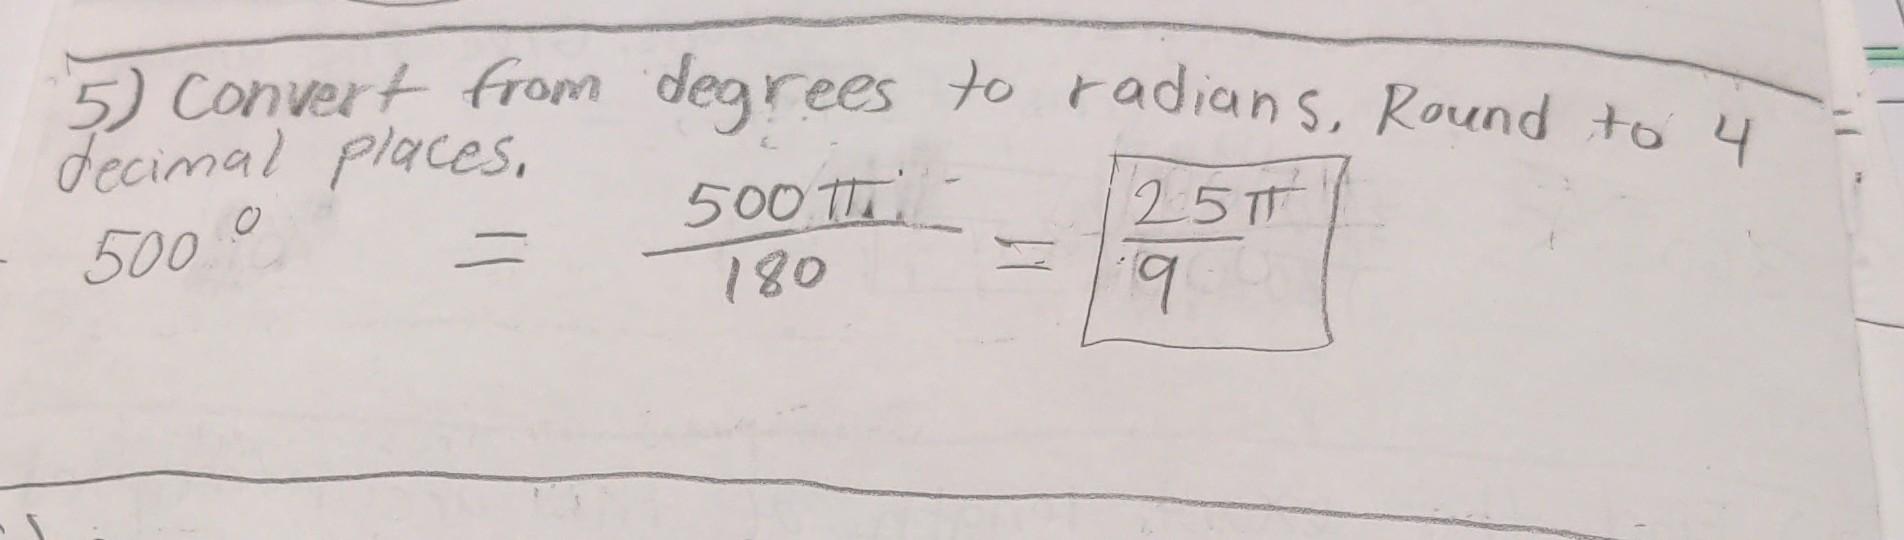 5) Convert from degrees to radians. Round to 4
decimal places.
500° = 500π/180 = 25π/9